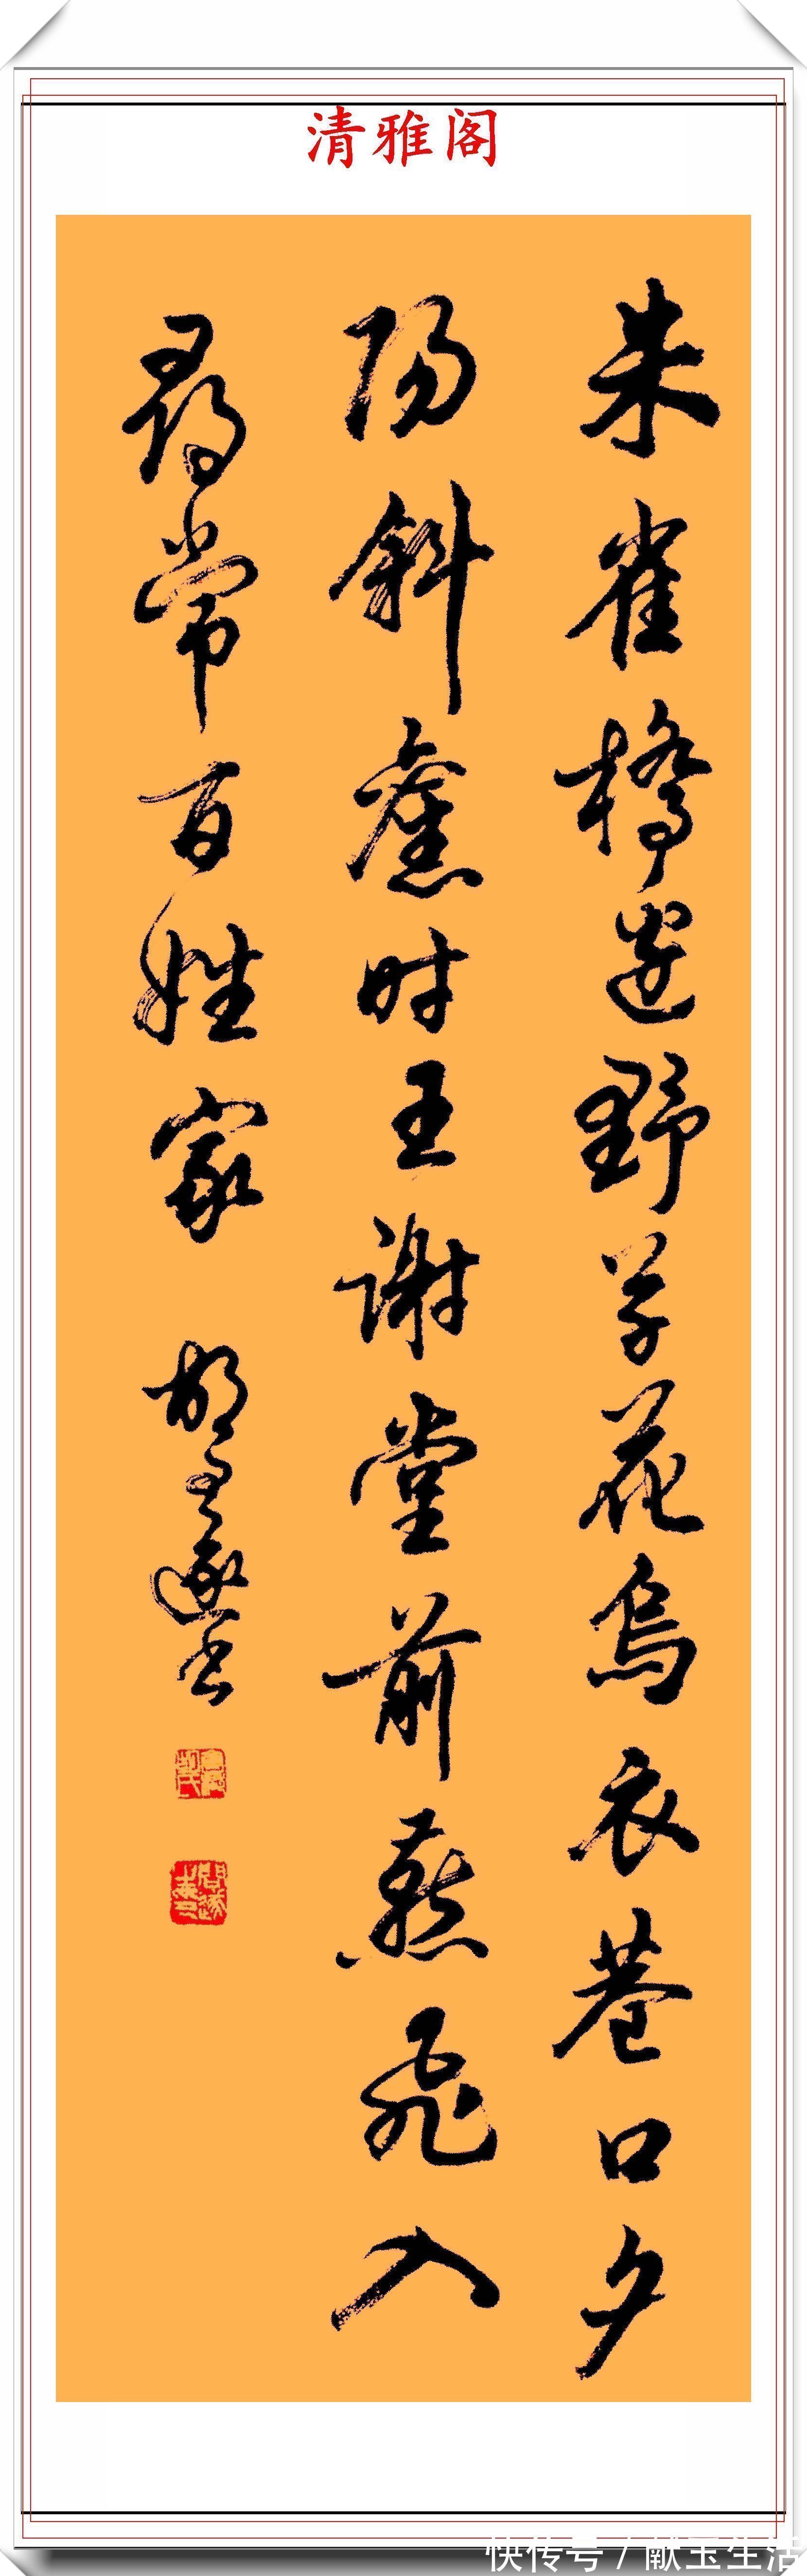 清雅阁
朱雀橋邊野草花烏衣巷口夕
陽斜舊时王谢堂前燕飛入
尋常百姓家
胡问遂书
快传号 / 献玉生活